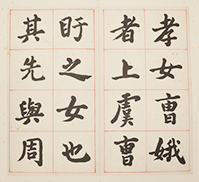 孝女曹娥
者上虞曹
盱之女也
其先與周